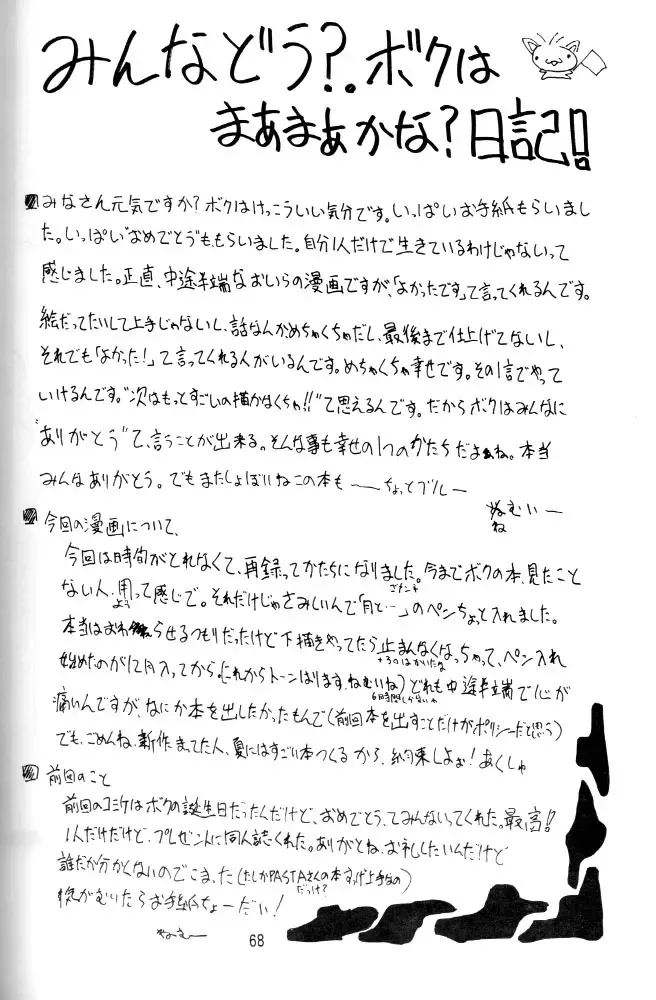 みんなどう?。ボクは
まあまあかな?日記!!
みなさん元気ですか?ボクはけっこういい気分です。いっぱいお手紙もらいまし
た。いっぱい"おめでとう"ももらいました。自分1人だけで生きているわけじゃないって
感じました。正直、中途半端なおいらの漫画ですが、「よかったです」て言ってくれるんです。
絵だってたいして上手じゃないし、話なんかめちゃくちゃだし、最後まで仕上げてないし、
それでも「よかった!」て言ってくれる人がいるんです。めちゃくちゃ幸せです。その1言でやって
いけるんです。"次はもっとすごいの描かなくちゃ!!"て思えるんです。だからボクはみんなに
"ありがとう"て、言うことが出来る。そんな事も幸せの1つのかたちだよぉね。本当
みんなありがとう。でもまたしょぼいねこの本も ── ちょっとブルー
ねむいー
ね
今回の漫画について、
今回は時間がとれなくて、再録ってかたちになりました。今までボクの本、見たこと
ない人用って感じで。それだけじゃさみしいんで「月と…」のペンちょっと入れました。
よう
本当はおわらせるつもりだったけど下描きやってたら止まんなくなっちゃって、ペン入れ
始めたのが12月入ってから。(これからトーンはります、ねむいね)どれも中途半端で心が
痛いんですが、なにか本を出したかったもんで(前回本を出すことだけがポリシーだと思う)
でも、ごめんね、新作まってた人、夏にはすごい本つくるから、約束しよぉ!あくしゅ
前回のこと
前回のコミケはボクの誕生日だったんだけど、おめでとう、てみんないってくれた。最高!!
1人だけだけど、プレゼントに同人誌くれた。ありがとね、お礼したいんだけど
誰だか分かんないのでこまった(たしかPASTAさんの本すっげ上手なの)
だっけ?
気がむいたらお手紙ちょーだい!
ねむー
68